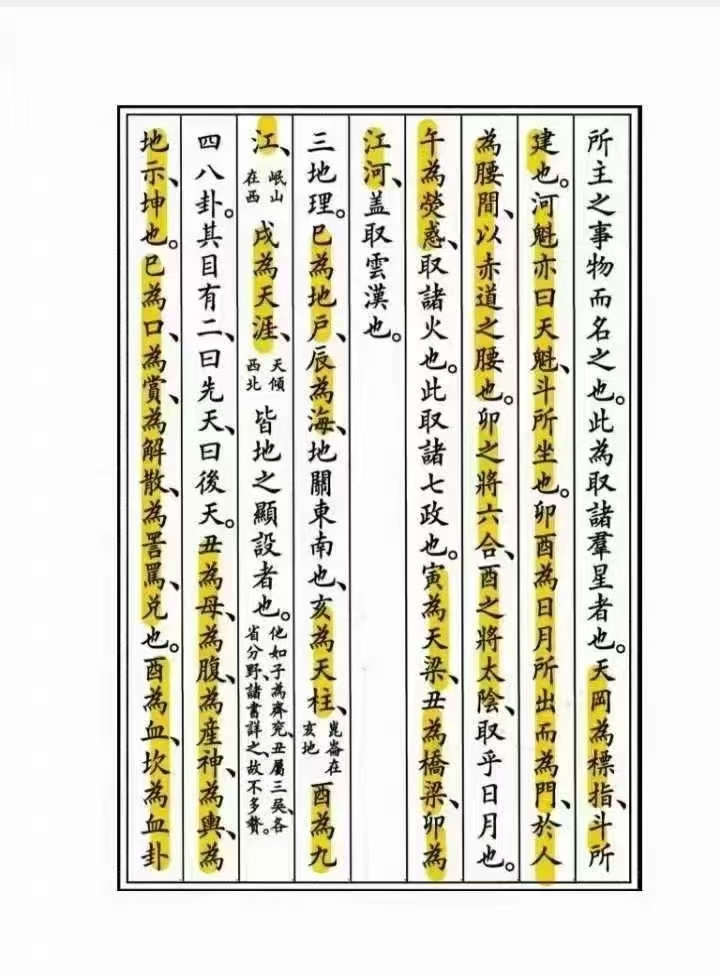 所主之事物而名之也。此為取諸羣星者也。天岡為標指、斗所
建也。河魁亦曰天魁、斗所坐也。卯酉為日月所出而為門、於人
為腰間、以赤道之腰也。卯之將六合、酉之將太陰、取乎日月也。
午為熒惑、取諸火也。此取諸七政也。寅為天梁、丑為橋梁、卯為
江河、蓋取雲漢也。
三地理。巳為地戶、辰為海、地闕東南也、亥為天柱、崑崙在亥地酉為九
江、岷山在西戌為天涯、天傾西北皆地之顯設者也。他如子為齊兗、丑屬三吳、各省分野、諸書詳之、故不多贅。
四八卦。其目有二、曰先天、曰後天。丑為母、為腹、為產神、為輿、為
地示、坤也。巳為口、為賞、為解散、為詈罵、兌也。酉為血、坎為血卦